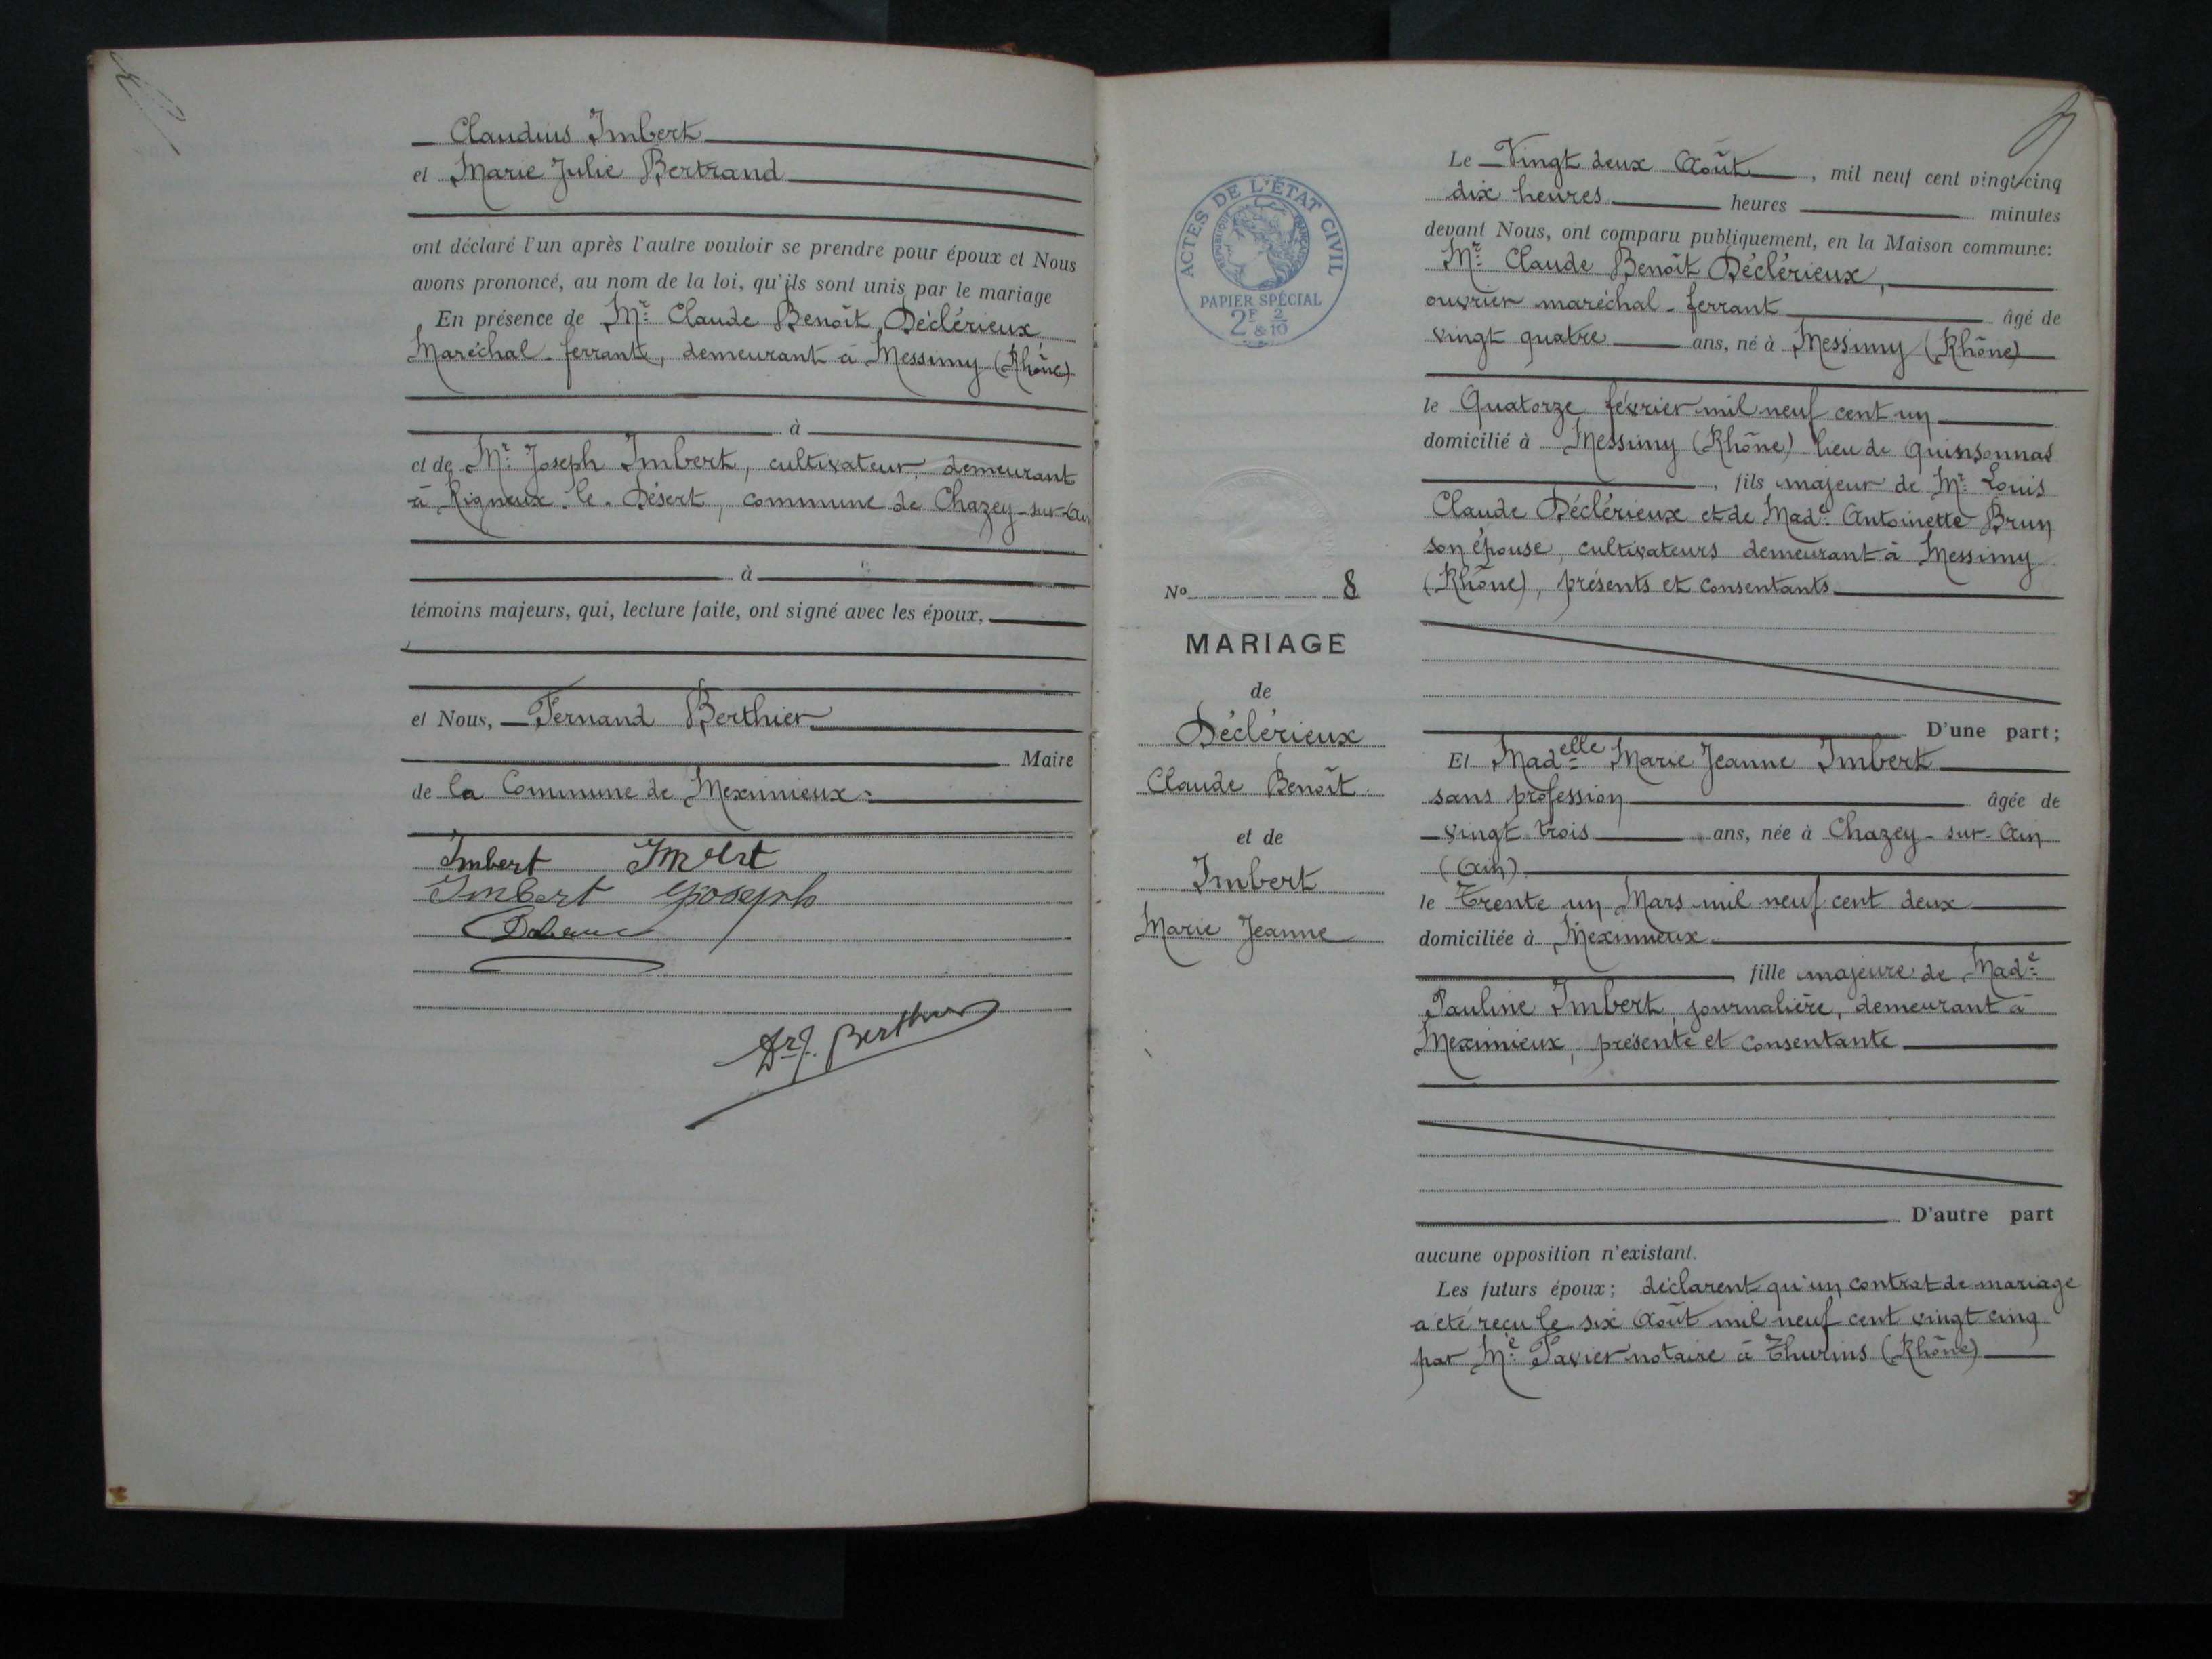 Claudius Imbert
et Marie Julie Bertrand
ont déclaré l'un après l'autre vouloir se prendre pour époux et Nous
avons prononcé, au nom de la loi, qu'ils sont unis par le mariage
En présence de Mr Claude Benoît Déclérieux
Maréchal-ferrant, demeurant à Messimy (Rhône)
à
et de Mr Joseph Imbert, cultivateur, demeurant
à Rigneux-le-Désert, commune de Chazey-sur-Ain
à
témoins majeurs, qui, lecture faite, ont signé avec les époux,
et Nous, Fernand Berthier
Maire
de la Commune de Meximieux.
Imbert Imbert
Imbert Joseph
Dr f. Berthier
ACTES DE L'ÉTAT CIVIL
RÉPUBLIQUE FRANÇAISE
PAPIER SPÉCIAL
2F & 2/10
No 8
MARIAGE
de
Déclérieux
Claude Benoît
et de
Imbert
Marie Jeanne
Le Vingt deux Août, mil neuf cent vingt-cinq
dix heures heures minutes
devant Nous, ont comparu publiquement, en la Maison commune:
Mr Claude Benoît Déclérieux,
ouvrier maréchal-ferrant âgé de
vingt quatre ans, né à Messimy (Rhône)
le Quatorze février mil neuf cent un
domicilié à Messimy (Rhône) lieu de Quinsonnas
, fils majeur de Mr Louis
Claude Déclérieux et de Made Antoinette Brun
son épouse, cultivateurs demeurant à Messimy
(Rhône), présents et consentants
D'une part;
Et Madelle Marie Jeanne Imbert
sans profession âgée de
vingt trois ans, née à Chazey-sur-Ain
(Ain)
le Trente un Mars mil neuf cent deux
domiciliée à Meximieux
fille majeure de Made
Pauline Imbert, journalière, demeurant à
Meximieux, présente et consentante
D'autre part
aucune opposition n'existant.
Les futurs époux; déclarent qu'un contrat de mariage
a été reçu le six Août mil neuf cent vingt cinq
par Me Pavier notaire à Thurins (Rhône)